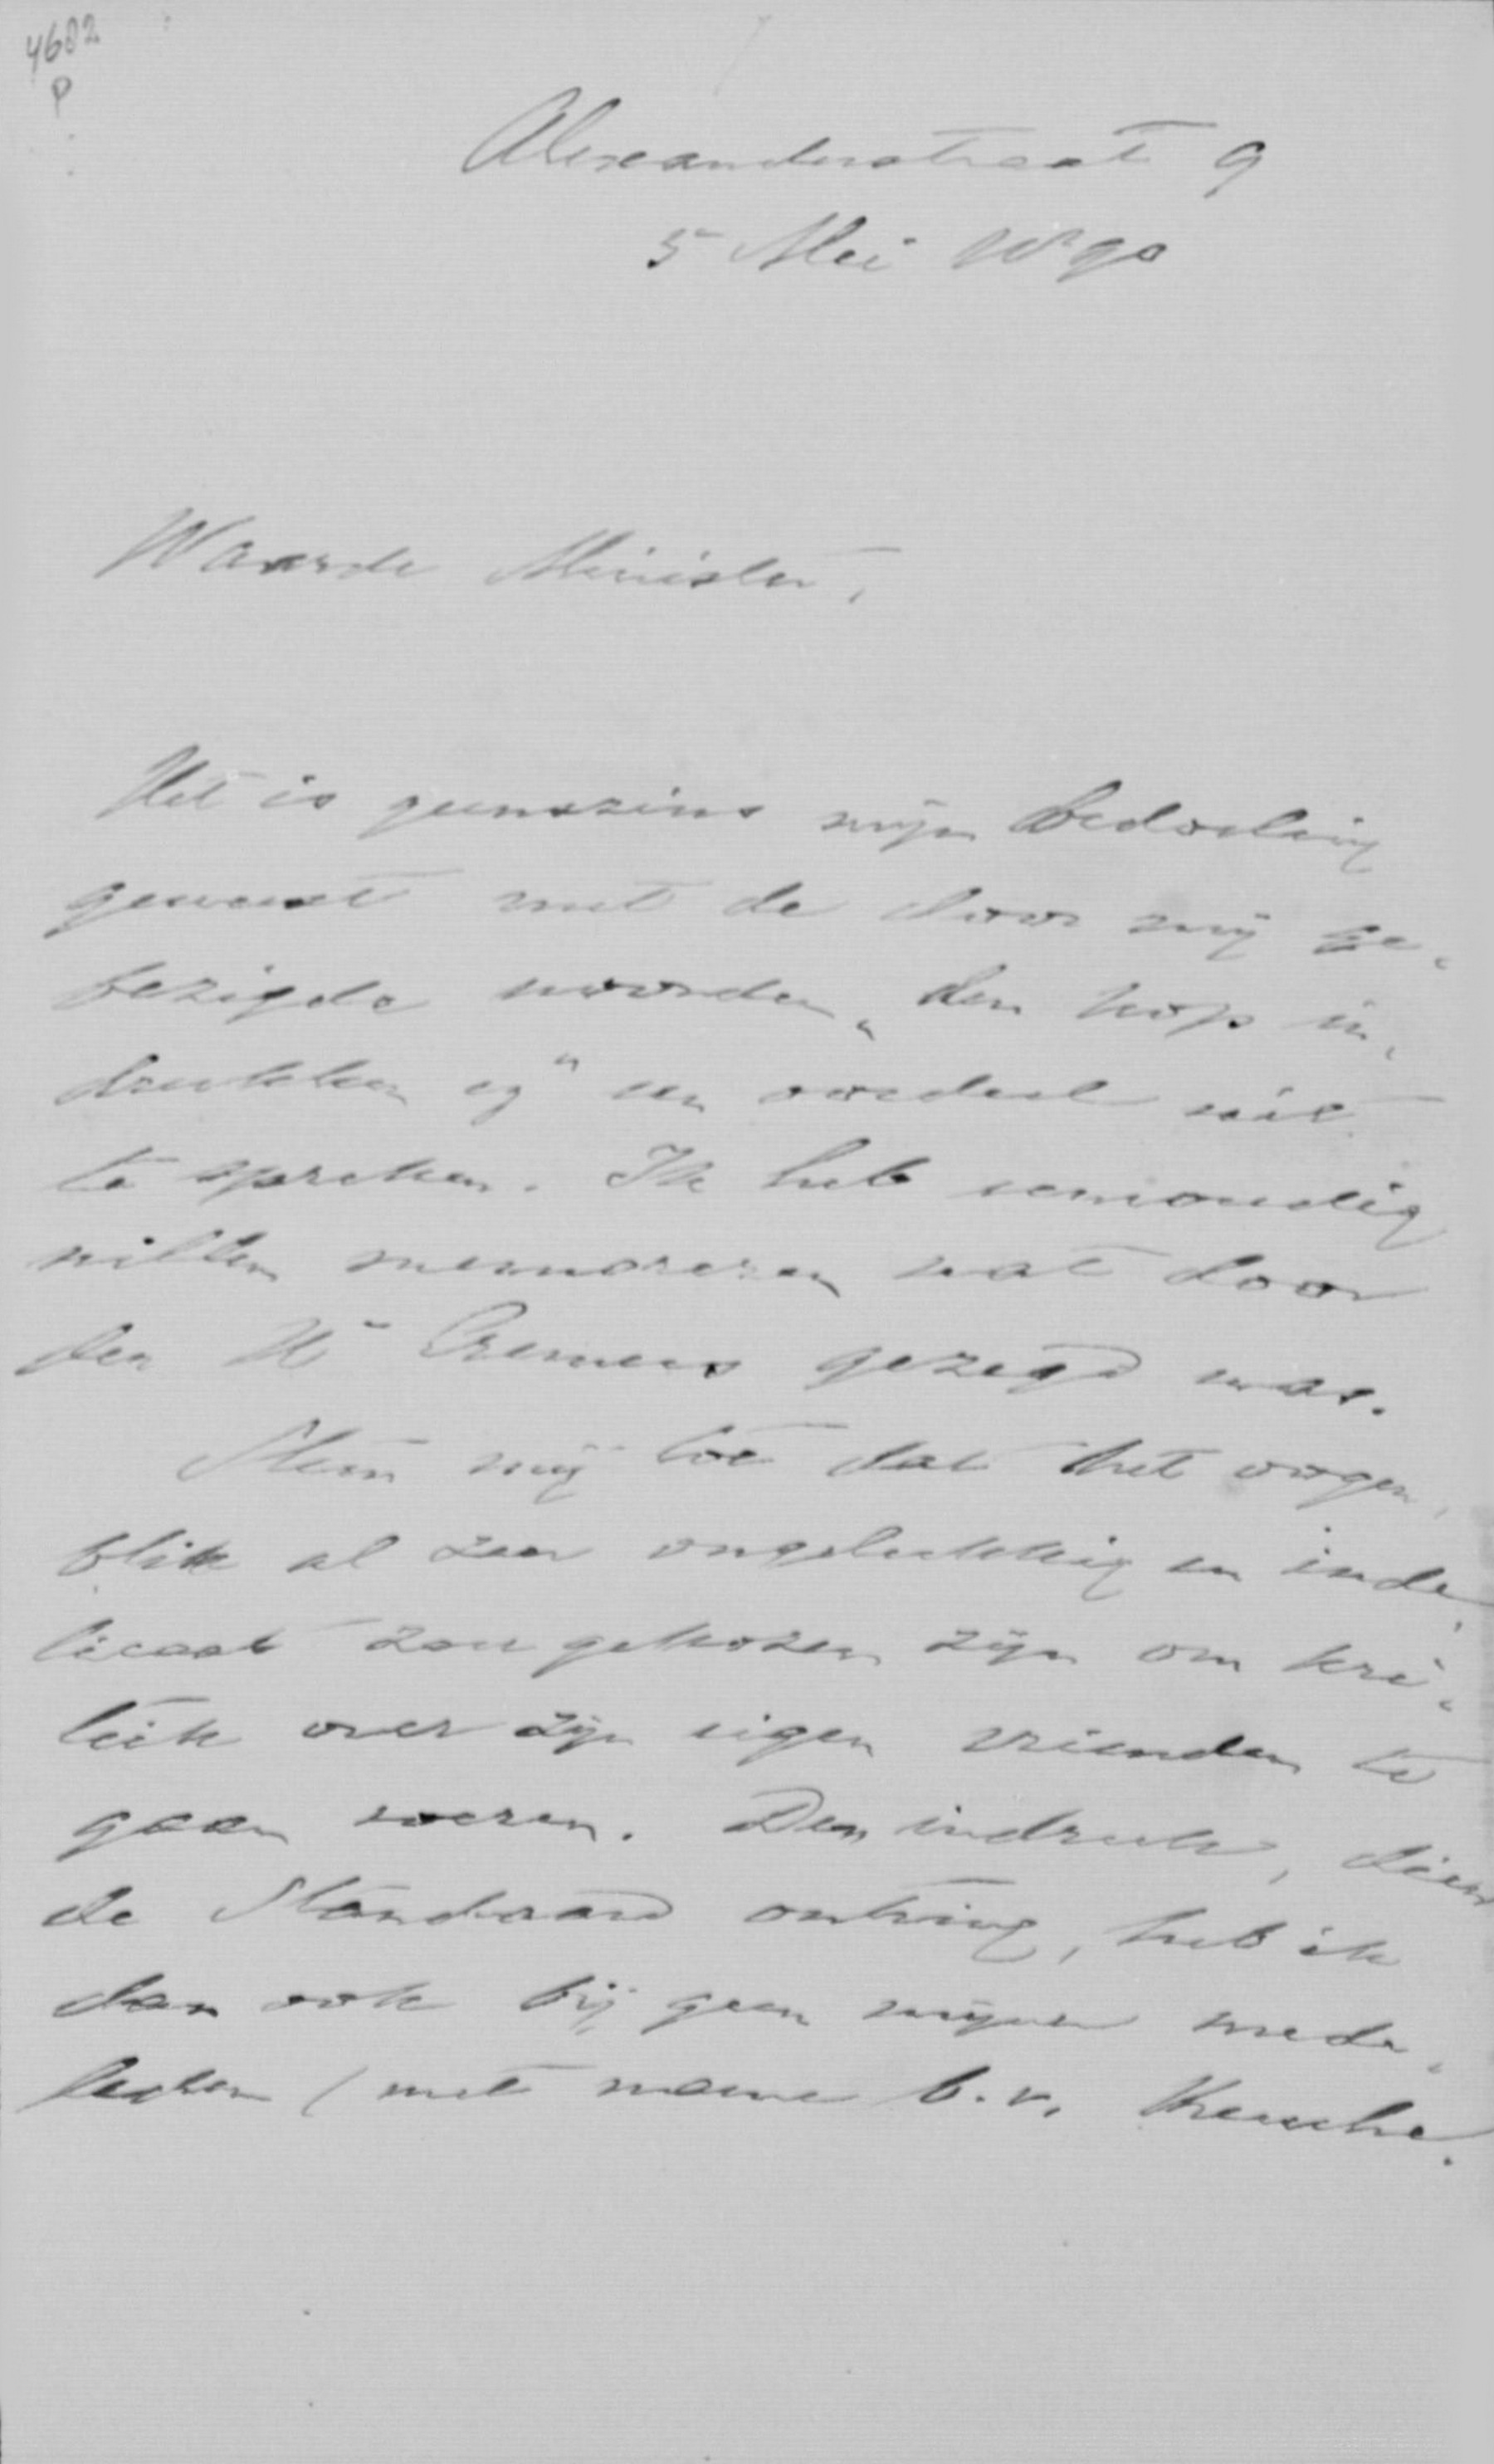 4682
P
Alexanderstraat 9
5 Mei 1890
Waarde Minister,
Het is geenszins mijn bedoeling
geweest met de door mij ge-
bezigde woorden „den kop in-
drukken" een oordeel uit
te spreken. Ik heb eenvoudig
willen memoreren wat door
den Hr Cremers gezegd was.
Stem mij toe dat het oogen-
blik al zeer ongelukkig en inde-
licaat zou gekozen zijn om kri-
tiek over zijn eigen vrienden te
gaan voeren. Den indruk, dien
de Standaard ontving, heb ik
dan ook bij geen mijner mede-
leden (met name b.v.